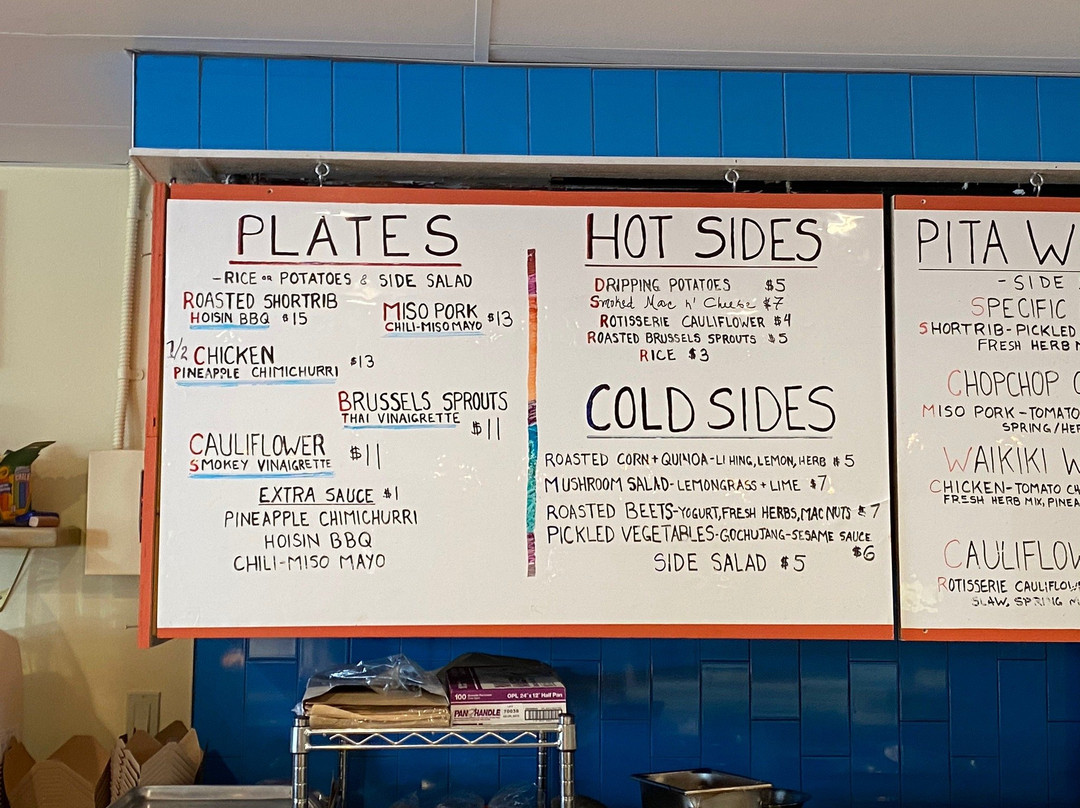 PLATES
-RICE OR POTATOES & SIDE SALAD
ROASTED SHORTRIB
HOISIN BBQ $15
MISO PORK
CHILI-MISO MAYO $13
1/2 CHICKEN
PINEAPPLE CHIMICHURRI $13
BRUSSELS SPROUTS
THAI VINAIGRETTE
$11
CAULIFLOWER
SMOKEY VINAIGRETTE $11
EXTRA SAUCE $1
PINEAPPLE CHIMICHURRI
HOISIN BBQ
CHILI-MISO MAYO
HOT SIDES
DRIPPING POTATOES $5
Smoked Mac n' Cheese $7
ROTISSERIE CAULIFLOWER $4
ROASTED BRUSSELS SPROUTS $5
RICE $3
COLD SIDES
ROASTED CORN + QUINOA-LI HING, LEMON, HERB $5
MUSHROOM SALAD-LEMONGRASS + LIME $7
ROASTED BEETS-YOGURT, FRESH HERBS, MAC NUTS $7
PICKLED VEGETABLES-GOCHUJANG-SESAME SAUCE
$6
SIDE SALAD $5
PITA W
-SIDE
SPECIFIC
SHORTRIB-PICKLED
FRESH HERB
CHOPCHOP
MISO PORK-TOMATO
SPRING/HER
WAIKIKI W
CHICKEN-TOMATO
FRESH HERB MIX, PINEA
CAULIFLOW
ROTISSERIE CAULIFLOW
SLAW, SPRING
100
OPL 24"x12" Half Pan
PAN HANDLE